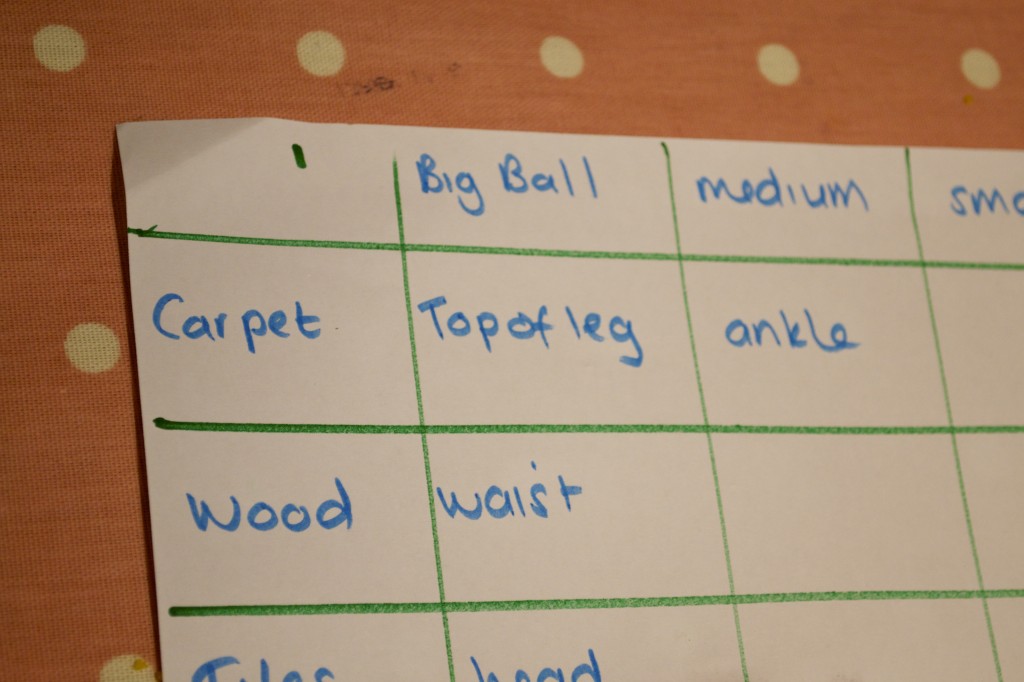 Big Ball medium
Carpet Top of leg ankle
Wood waist
Tiles head